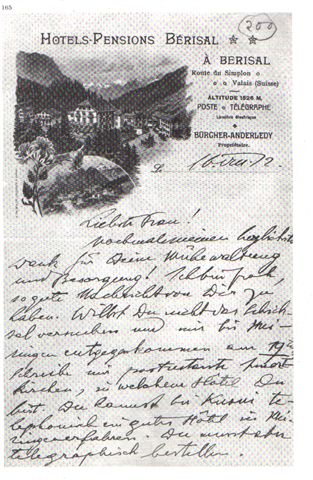 165
200
HOTELS-PENSIONS BÉRISAL ★ ★
À BERISAL
Route du Simplon o
o o Valais (Suisse)
ALTITUDE 1526 M.
POSTE & TÉLÉGRAPHE
Lumière électrique
BÜRGHER-ANDERLEDY
Propriétaire.
Liebste Frau!
nochmals meinen herzlichsten
Dank für Deine Mühewaltung
und Besorgung! Ich bin froh
so gute Nachricht von Dir zu
haben. Willst Du nicht das Schick-
sal versuchen und mir bis Mei-
ringen entgegenkommen am
Schreibe mir postrestante
in welchem Hotel Du
bist. Du kannst bei te-
lephonisch ein gutes Hôtel in Mei-
ringen erfahren. Du musst aber
telegraphisch bestellen.